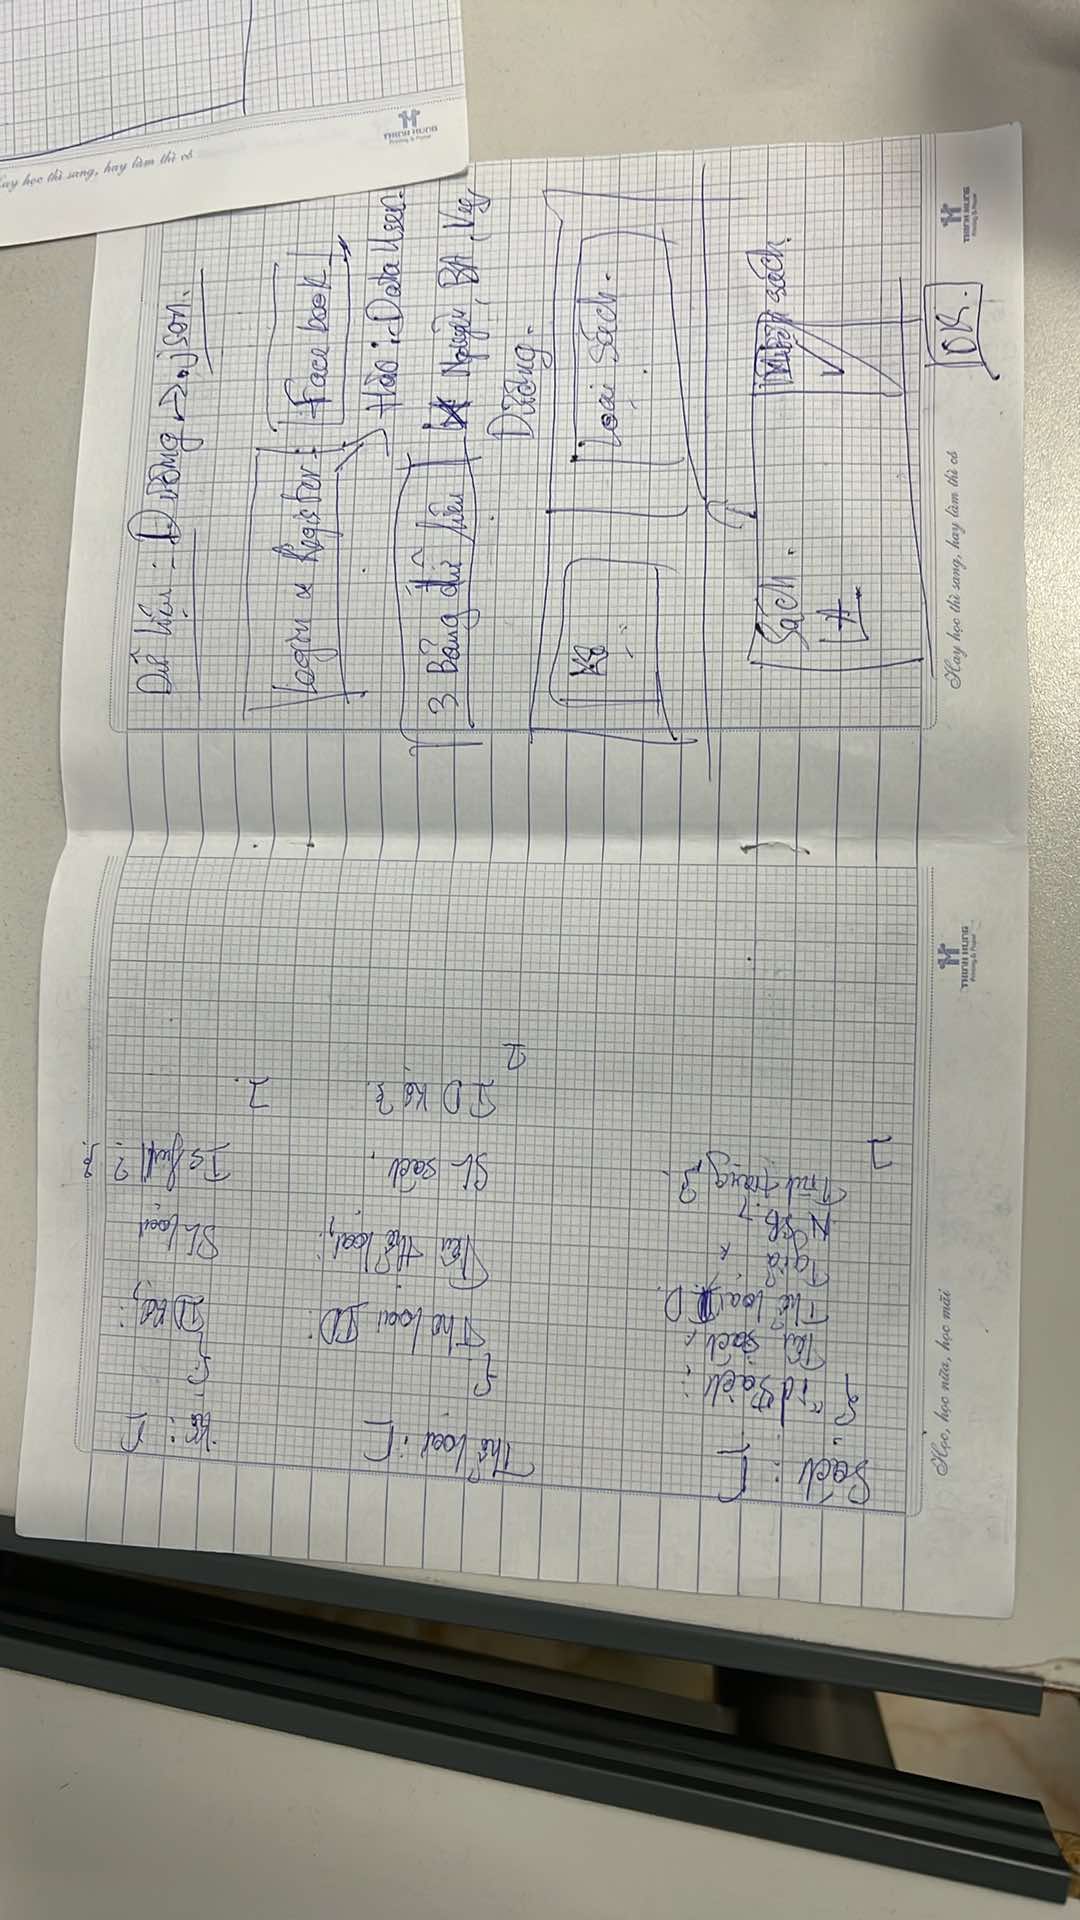 Sách: [
{ "id Sách:
Tên sách,
Thể loại ID.
T giả
NSB:
Tình trạng }.
]
Thể loại: [
{
Thể loại ID:
Tên thể loại;
SL sách,
ID Kệ }.
]
Kệ: [
{
ID Kệ;
SL loại
Is full ? }.
].
Học, học nữa, học mãi
THINH HUNG
Printing & Paper
Dữ liệu: Dương → .json.
Login & Register: Facebook
Hào: Data User.
3 Bảng dữ liệu
Nguyên, BA, Vy,
Dương.
Kệ
Loại sách.
Sách. Mượn sách
A
OK.
Hay học thì sang, hay làm thì có
THINH HUNG
Printing & Paper
THINH HUNG